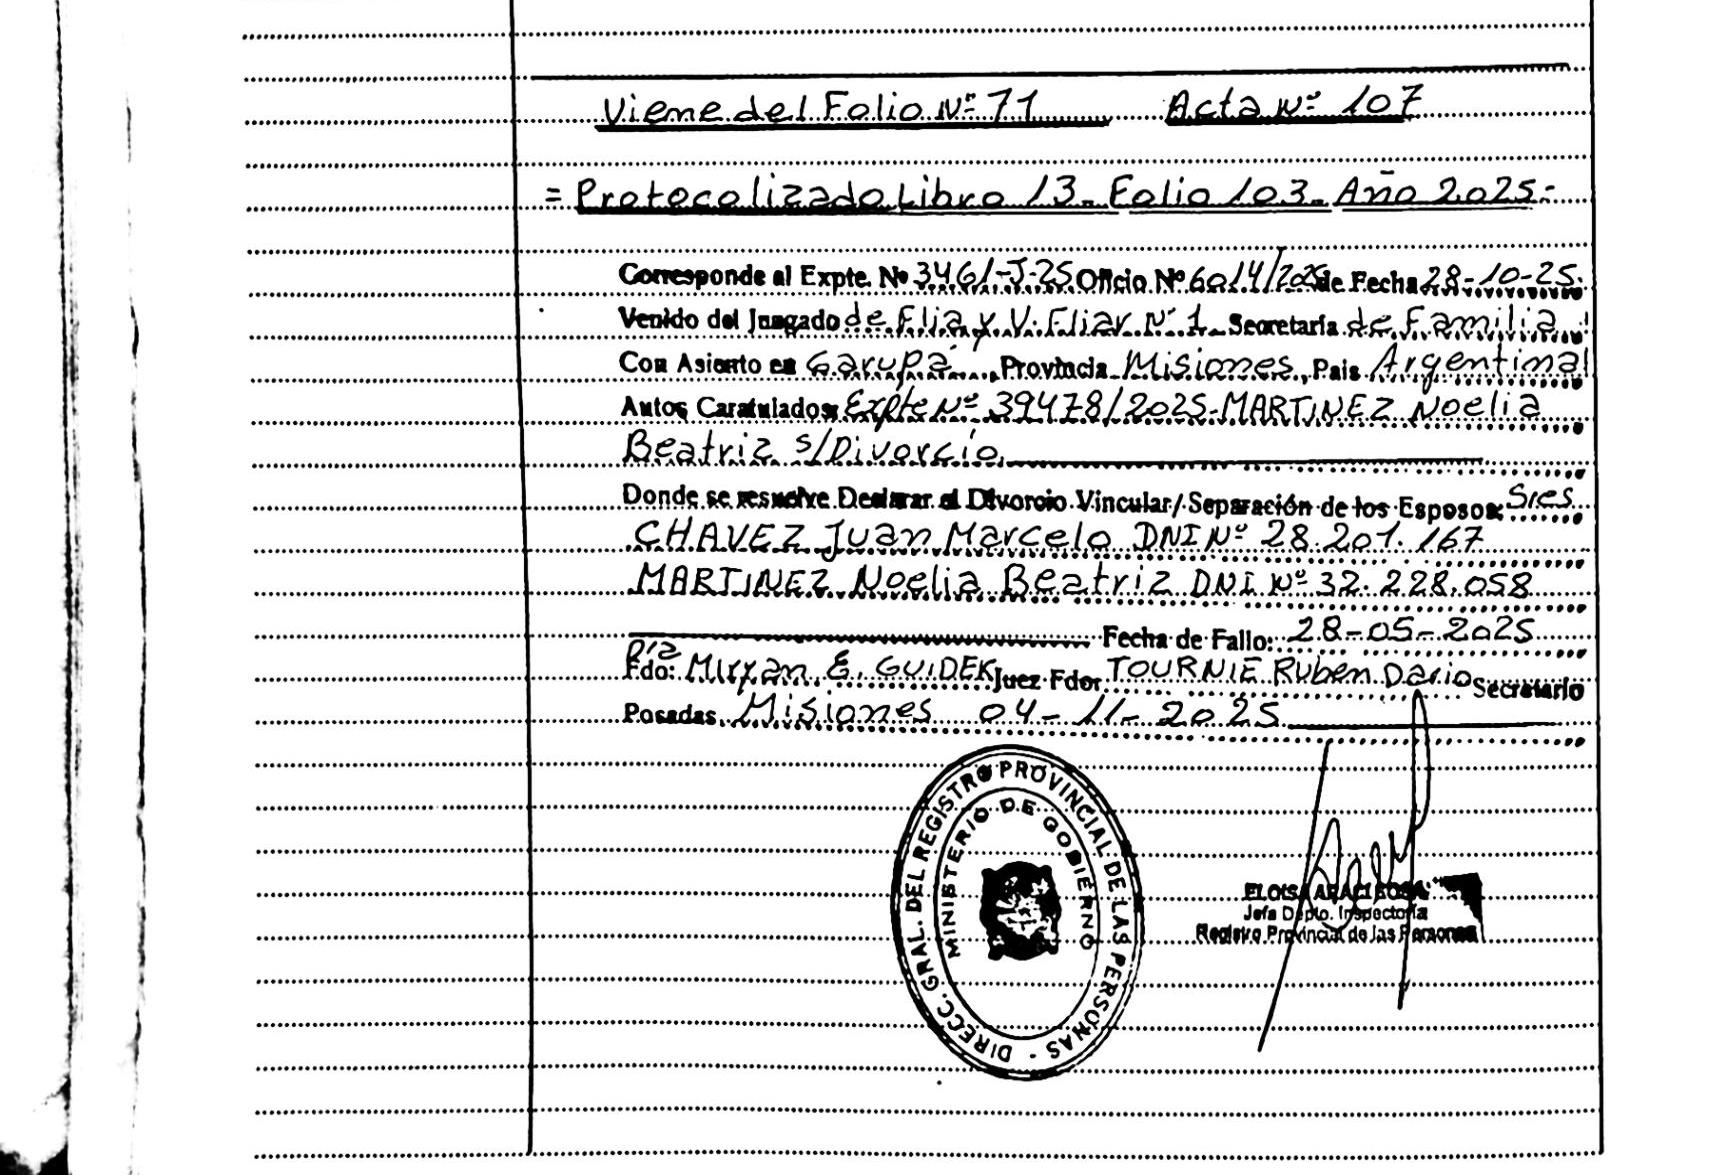 Viene del Folio Nº 71 Acta Nº 107
= Protocolizado Libro 13 - Folio 103 - Año 2025 -
Corresponde al Expte. Nº 3461-J-25 Oficio Nº 6014/2025 de Fecha 28-10-25.
Venido del Juzgado de Flia y V. Fliar Nº 1 Secretaría de Familia
Con Asiento en Garupá, Provincia Misiones, Pais Argentina
Autos Caratulados: Expte Nº 39478/2025-MARTINEZ Noelia
Beatriz s/Divorcio.
Donde se resuelve Declarar el Divorcio Vincular/Separación de los Esposos: Sres
CHAVEZ Juan Marcelo DNI Nº 28.201.167
MARTINEZ Noelia Beatriz DNI Nº 32.228.058
Fecha de Fallo: 28-05-2025
Fdo: Dra Miryan E. GUIDEK Juez Fdo: TOURNIE Ruben Dario Secretario
Posadas, Misiones 04-11-2025
DIRECC. GRAL. DEL REGISTRO PROVINCIAL DE LAS PERSONAS -
MINISTERIO DE GOBIERNO
ELOISA ARACI SOSA
Jefa Dpto. Inspectoría
Registro Provincial de las Personas